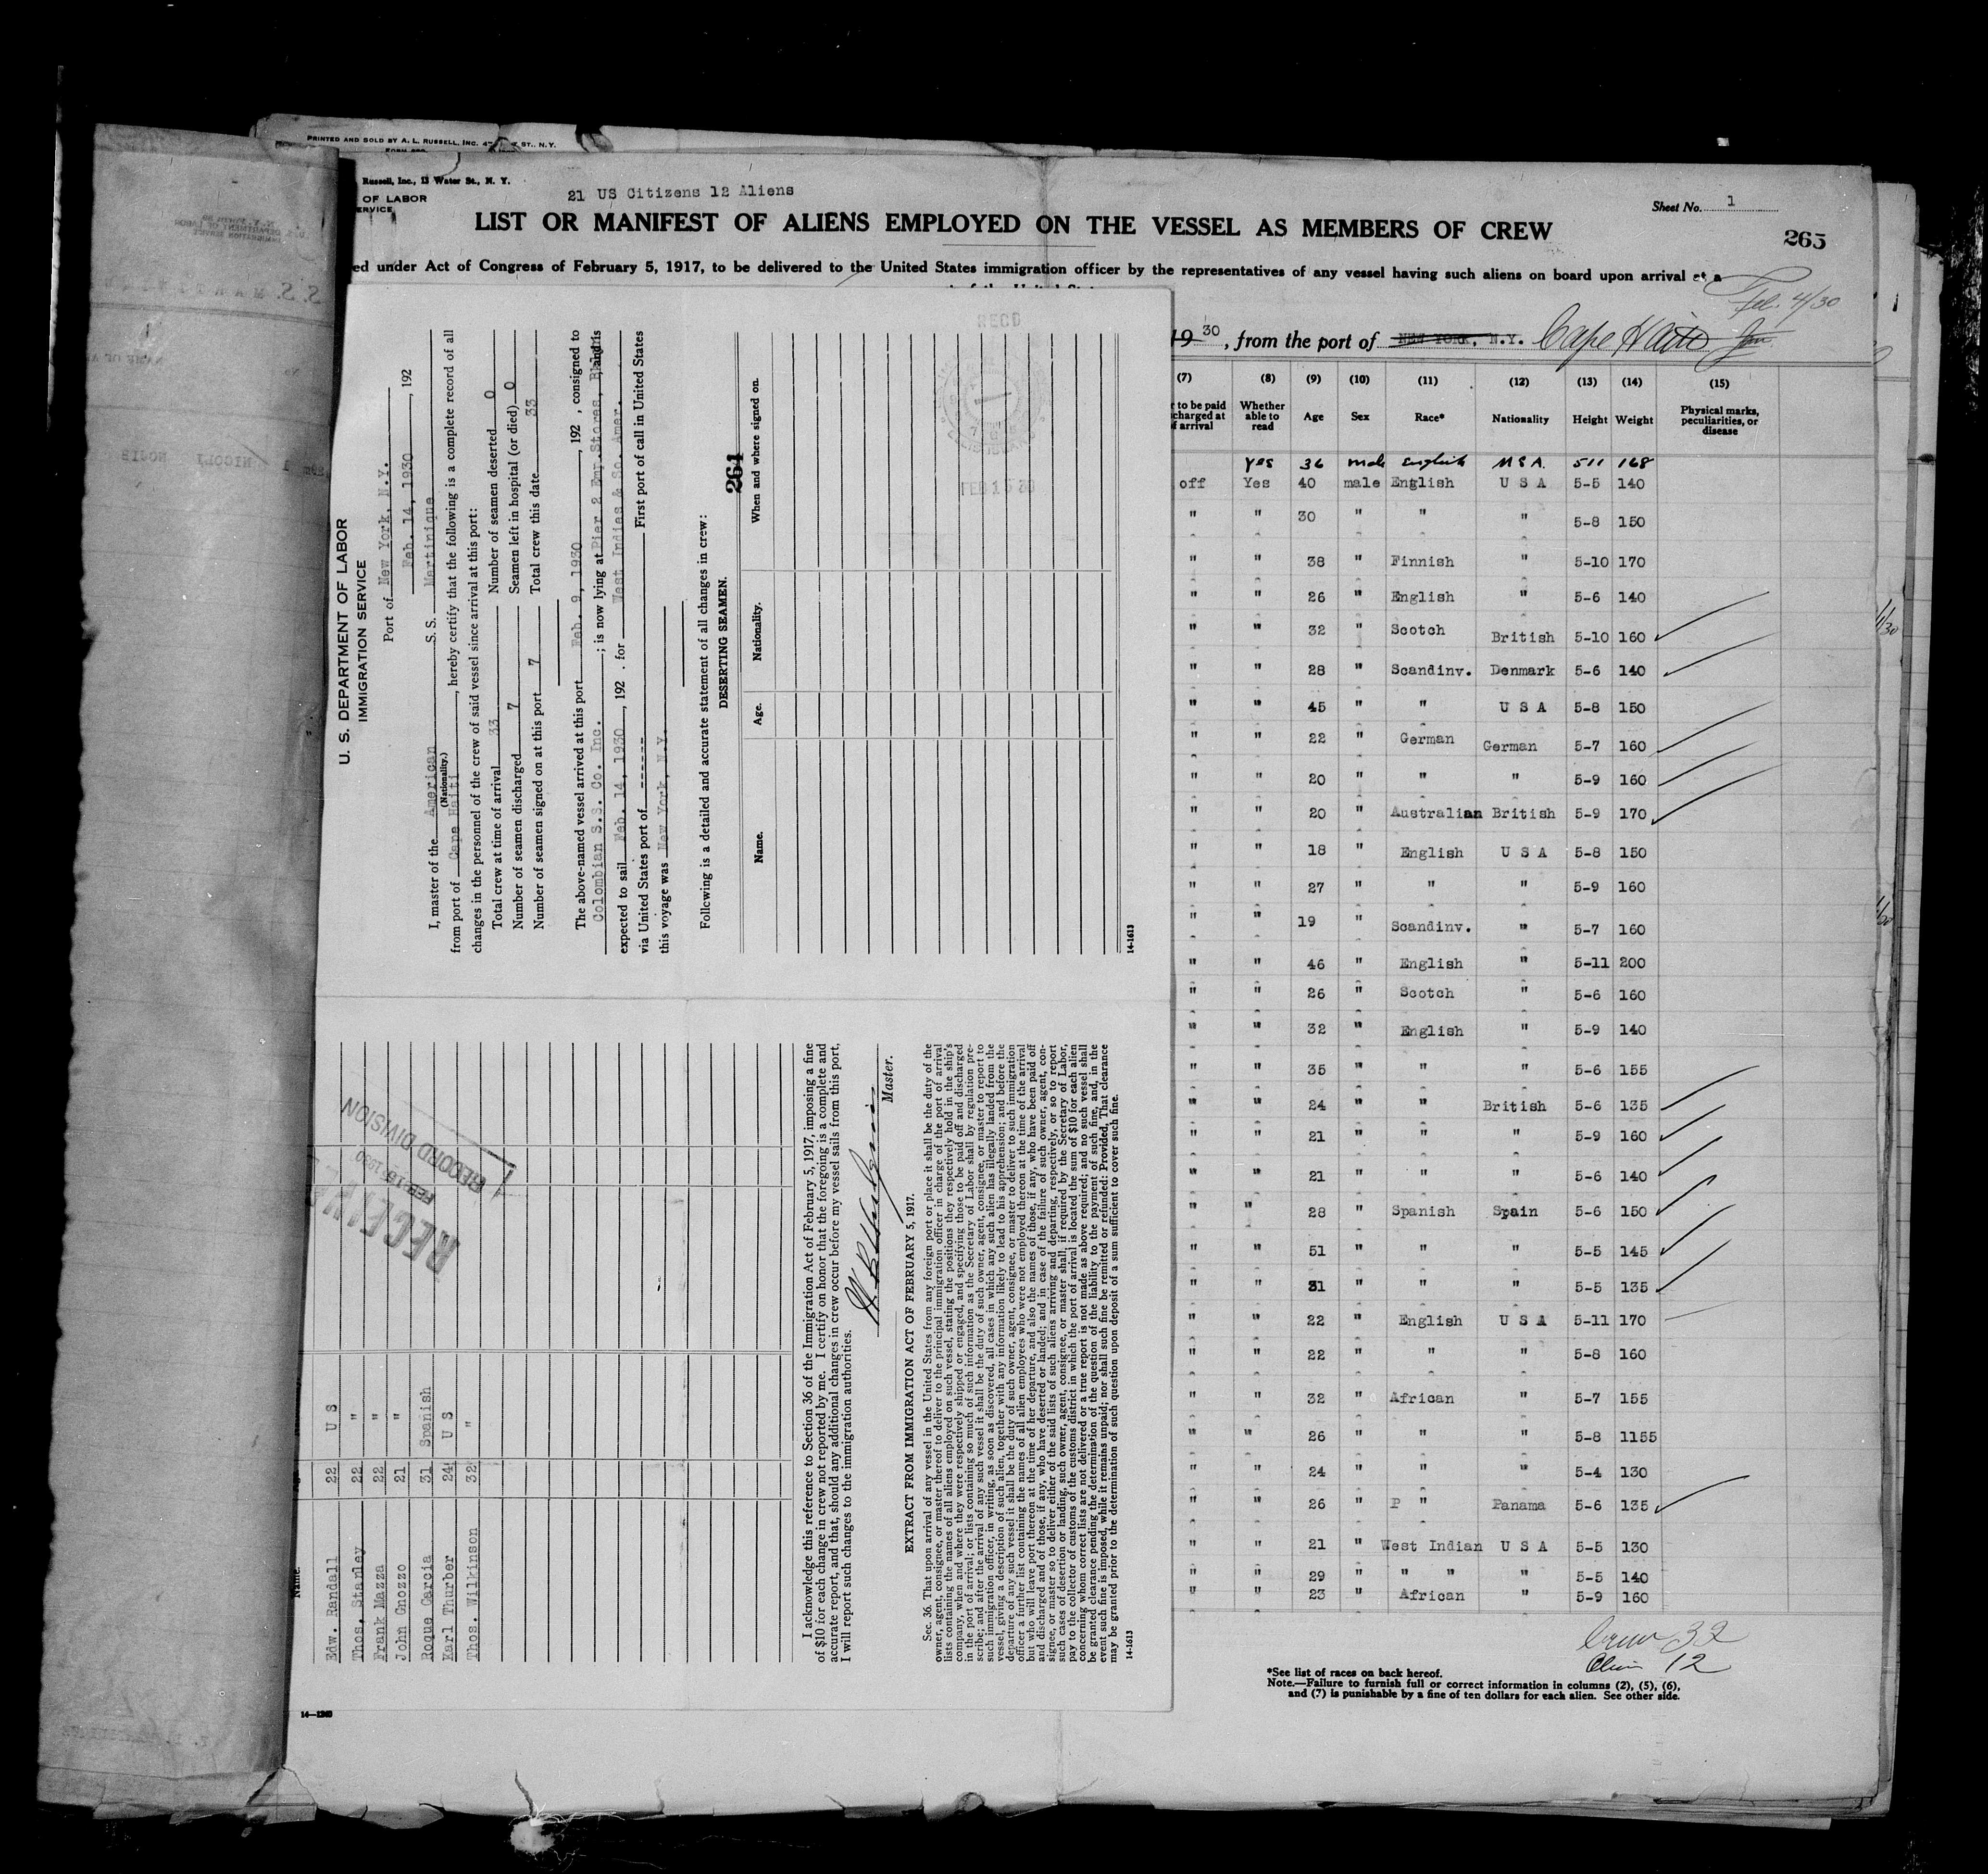 PRINTED AND SOLD BY A. L. RUSSELL, INC. ST., N.Y.
Russell, Inc., 13 Water St., N. Y.
OF LABOR
ERVICE
21 US Citizens 12 Aliens
Sheet No. 1
LIST OR MANIFEST OF ALIENS EMPLOYED ON THE VESSEL AS MEMBERS OF CREW
265
ed under Act of Congress of February 5, 1917, to be delivered to the United States immigration officer by the representatives of any vessel having such aliens on board upon arrival at a
Feb. 4/30
19 30, from the port of NEW YORK, N.Y. Cape Haiti
(7) (8) (9) (10) (11) (12) (13) (14) (15)
to be paid
charged at
f arrival
Whether able to read
Age
Sex
Race*
Nationality
Height
Weight
Physical marks, peculiarities, or disease
Yes 36 male English U S A. 511 168
off Yes 40 male English U S A 5-5 140
" " 30 " " " 5-8 150
" " 38 " Finnish " 5-10 170
" " 26 " English " 5-6 140
" " 32 " Scotch British 5-10 160
" " 28 " Scandinv. Denmark 5-6 140
" " 45 " " U S A 5-8 150
" " 22 " German German 5-7 160
" " 20 " " " 5-9 160
" " 20 " Australian British 5-9 170
" " 18 " English U S A 5-8 150
" " 27 " " " 5-9 160
" " 19 " Scandinv. " 5-7 160
" " 46 " English " 5-11 200
" " 26 " Scotch " 5-6 160
" " 32 " English " 5-9 140
" " 35 " " " 5-6 155
" " 24 " " British 5-6 135
" " 21 " " " 5-9 160
" " 21 " " " 5-6 140
" " 28 " Spanish Spain 5-6 150
" " 51 " " " 5-5 145
" " 31 " " " 5-5 135
" " 22 " English U S A 5-11 170
" " 22 " " " 5-8 160
" " 32 " African " 5-7 155
" " 26 " " " 5-8 1155
" " 24 " " " 5-4 130
" " 26 " P " Panama 5-6 135
" " 21 " West Indian U S A 5-5 130
" " 29 " " " " 5-5 140
" " 23 " African " 5-9 160
Crew 32
Alien 12
*See list of races on back hereof.
Note.—Failure to furnish full or correct information in columns (2), (5), (6),
and (7) is punishable by a fine of ten dollars for each alien. See other side.
U. S. DEPARTMENT OF LABOR
IMMIGRATION SERVICE
Port of New York, N.Y.
Feb. 14, 1930, 192
I, master of the American S. S. Martinique
(Nationality.)
from port of Cape Haiti, hereby certify that the following is a complete record of all
changes in the personnel of the crew of said vessel since arrival at this port:
Total crew at time of arrival 33 Number of seamen deserted 0
Number of seamen discharged 7 Seamen left in hospital (or died) 0
Number of seamen signed on at this port 7 Total crew this date 33
The above-named vessel arrived at this port Feb. 9, 1930, 192 , consigned to
Colombian S.S. Co. Inc. ; is now lying at Pier 2 Emp. Stores, Bkln
expected to sail Feb. 14, 1930, 192 . for West Indies & So. Amer.
via United States port of ------ First port of call in United States
this voyage was New York, N.Y.
Following is a detailed and accurate statement of all changes in crew:
DESERTING SEAMEN.
264
Name. Age. Nationality. When and where signed on.
RECD
FEB 15 30
14-1613
Name.
Edw. Randall 22 U S
Thos. Stanley 22 "
Frank Mazza 22 "
John Gnozzo 21 "
Roque Garcia 31 Spanish
Karl Thurber 24 U S
Thos. Wilkinson 32 "
RECEIVED
FEB 18 1930
RECORD DIVISION
I acknowledge this reference to Section 36 of the Immigration Act of February 5, 1917, imposing a fine
of $10 for each change in crew not reported by me. I certify on honor that the foregoing is a complete and
accurate report, and that, should any additional changes in crew occur before my vessel sails from this port,
I will report such changes to the immigration authorities.
Master.
EXTRACT FROM IMMIGRATION ACT OF FEBRUARY 5, 1917.
Sec. 36. That upon arrival of any vessel in the United States from any foreign port or place it shall be the duty of the
owner, agent, consignee, or master thereof to deliver to the principal immigration officer in charge of the port of arrival
lists containing the names of all aliens employed on such vessel, stating the positions they respectively hold in the ship's
company, when and where they were respectively shipped or engaged, and specifying those to be paid off and discharged
in the port of arrival; or lists containing so much of such information as the Secretary of Labor shall by regulation pre-
scribe; and after the arrival of any such vessel it shall be the duty of such owner, agent, consignee, or master to report to
such immigration officer, in writing, as soon as discovered, all cases in which any such alien has illegally landed from the
vessel, giving a description of such alien, together with any information likely to lead to his apprehension; and before the
departure of any such vessel it shall be the duty of such owner, agent, consignee, or master to deliver to such immigration
officer a further list containing the names of all alien employees who were not employed thereon at the time of the arrival
but who will leave port thereon at the time of her departure, and also the names of those, if any, who have been paid off
and discharged and of those, if any, who have deserted or landed; and in case of the failure of such owner, agent, con-
signee, or master so to deliver either of the said lists of such aliens arriving and departing, respectively, or so to report
such cases of desertion or landing, such owner, agent, consignee, or master shall, if required by the Secretary of Labor,
pay to the collector of customs of the customs district in which the port of arrival is located the sum of $10 for each alien
concerning whom correct lists are not delivered or a true report is not made as above required; and no such vessel shall
be granted clearance pending the determination of the question of the liability to the payment of such fine, and, in the
event such fine is imposed, while it remains unpaid; nor shall such fine be remitted or refunded: Provided, That clearance
may be granted prior to the determination of such question upon deposit of a sum sufficient to cover such fine.
14-1613